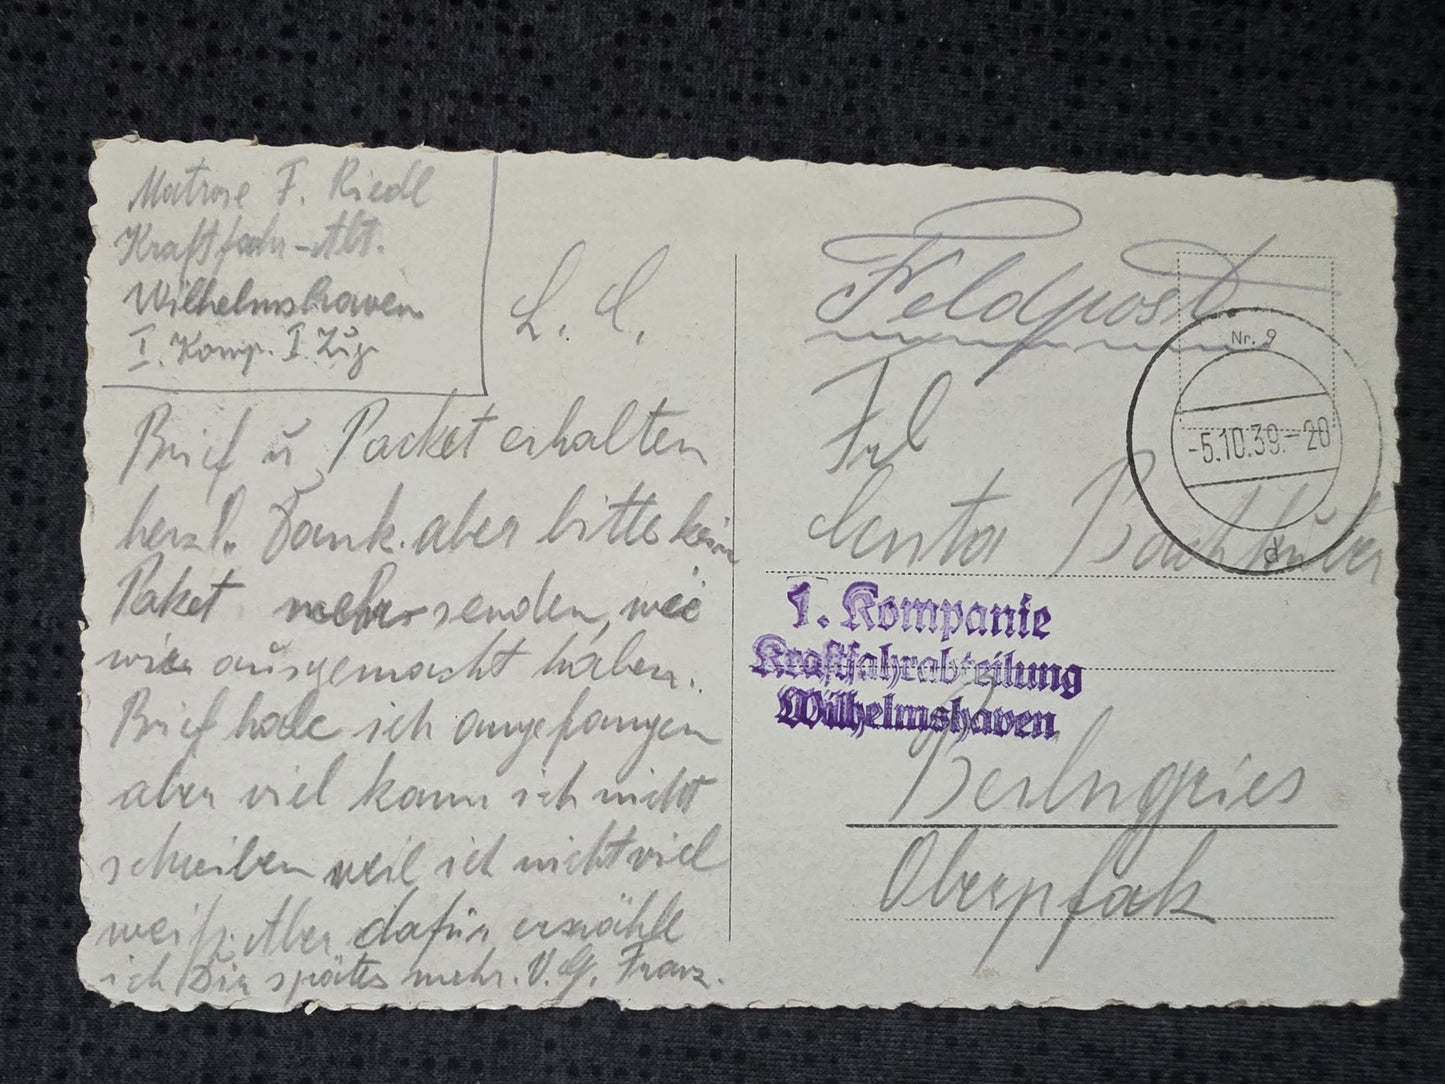 Matrose F. Riedl
Kraftfahr-Abt.
Wilhelmshaven
I. Komp. I. Zug
Brief u Packet erhalten
herzl. Dank. aber bitte kein
Paket mehr senden, wie
wir ausgemacht haben.
Brief habe ich angefangen
aber viel kann ich nicht
schreiben weil ich nicht viel
weiß. Aber dafür erzähle
ich Dir später mehr. V. G. Franz.
Feldpost.
Nr. 9
-5.10.39.-20
d
Frl
Centa
1. Kompanie
Kraftfahrabteilung
Wilhelmshaven
Beilngries
Oberpfalz